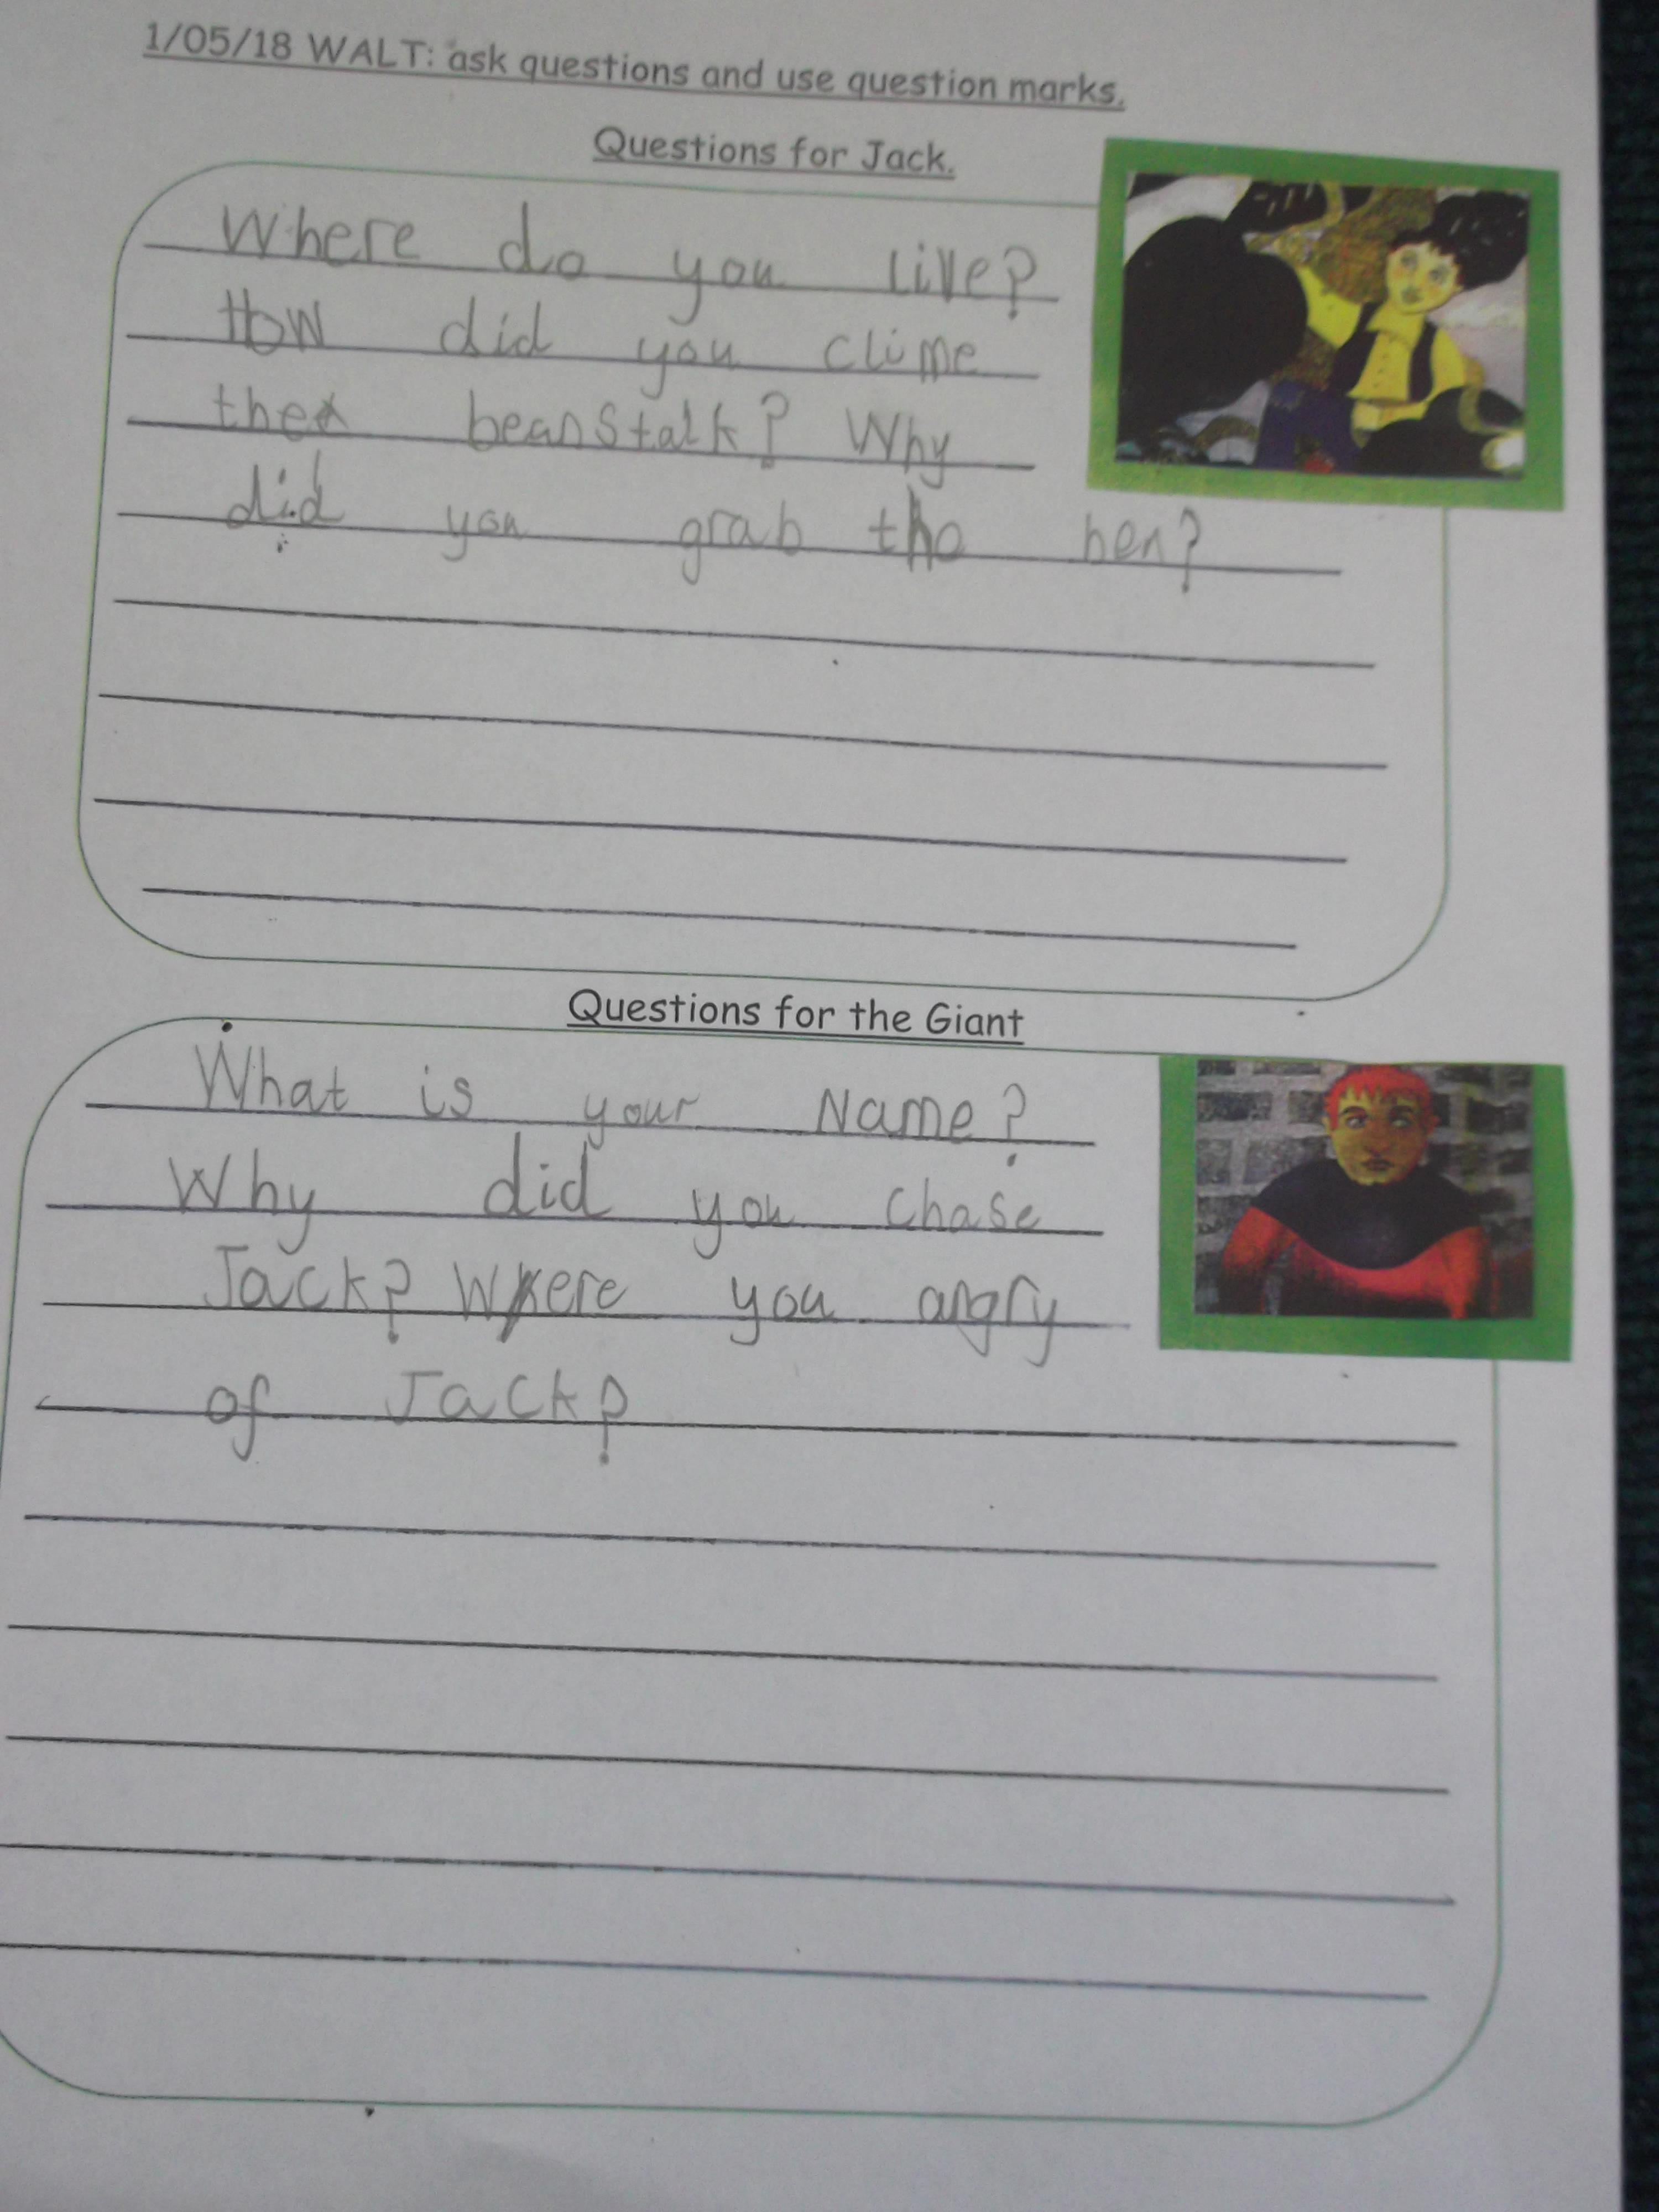 1/05/18 WALT: ask questions and use question marks.
Questions for Jack.
Where do you live?
How did you clime
the beanstalk? Why
did you grab the hen?
Questions for the Giant
What is your Name?
Why did you chase
Jack? Were you angry
of Jack?